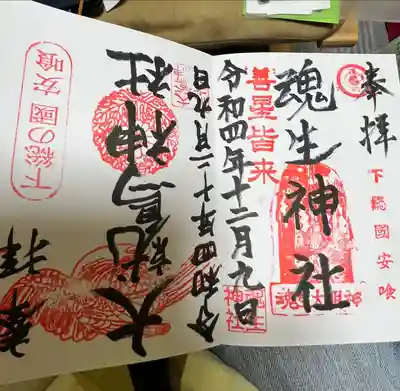 奉拝
下總國安喰
魂生神社
魂生大明神
善星皆来
令和四年十二月九日
奉拝
大鷲神社
令和四年十二月九日
下総の國安喰